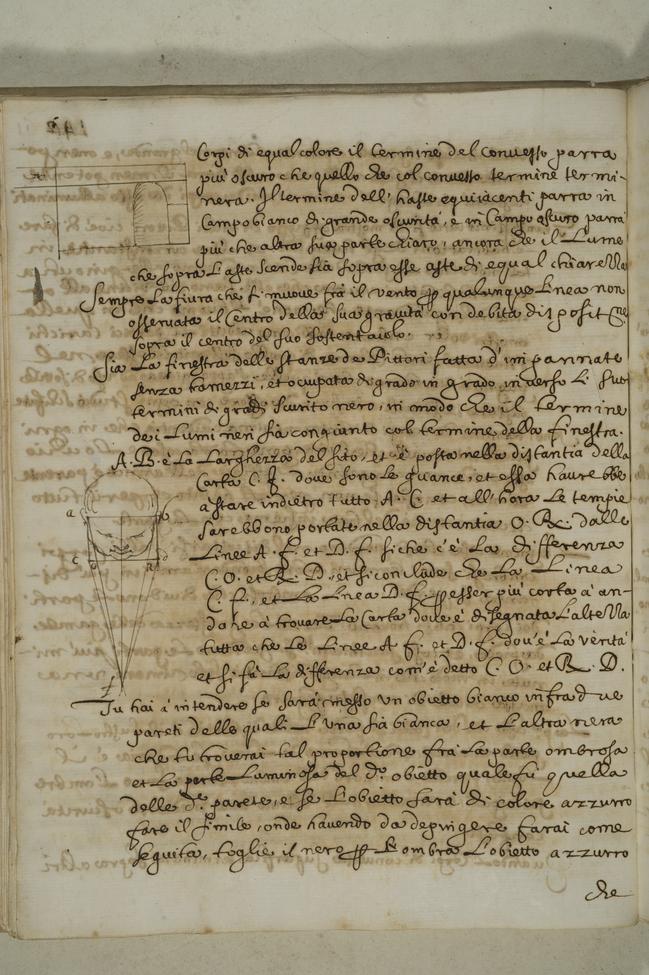 Corpi di equal colore il termine del convesso parra
più oscuro che quello che col convesso termine termi-
nera. Il termine dell' haste equiiacenti parra in
Campo bianco di grande oscurità, e in Campo oscuro parra
più che altra sua parte chiaro, ancora che il Lume
che sopra L'aste scende sia sopra esse aste di equal chiarezza
Sempre La fiura che si muove fra il vento p qualunque Linea non
osservata il Centro della sua gravità con debita disposit.ne
sopra il centro del suo sostentaiolo.
Sia La finestra delle stanze de Pittori fatta d'impannate
senza tramezzi, et ocupata di grado in grado inverso Li suoi
termini di gradi scurito nero, in modo che il termine
dei Lumi neri sia congiunto col termine della finestra.
A. B. è La Larghezza del sito, et è posta nella distantia della
Carta C. J. dove sono le guance, et essa haurebbe
a stare indietro tutto A. C. et all'hora Le tempie
sarebbono portate nella distantia O. R. dalle
Linee A. f. et D. f. siche c'è La differenza
C. O. et R. D. et si conclude che La Linea
C. f. et La Linea D. f. p esser più corta à an-
dare à trovare La Carta dove è disegnata L'altezza
tutta che Le Linee A f. et D. f. dov'è La verità
et si fà La differenza com'è detto C. O. et R. D.
a
b
c
o
R
d
f
Tu hai à intendere se sarà messo un obietto bianco infra due
pareti delle quali L'una sia bianca, et L'altra nera
che tu troverai tal proportione fra La parte ombrosa
et La parte Luminosa del d.º obietto quale fù quella
delle d.e parete, e se L'obietto sarà di colore azzurro
fare il simile, onde havendo da depingere farai come
seguita, toglie il nero p L'ombra L'obietto azzurro
che